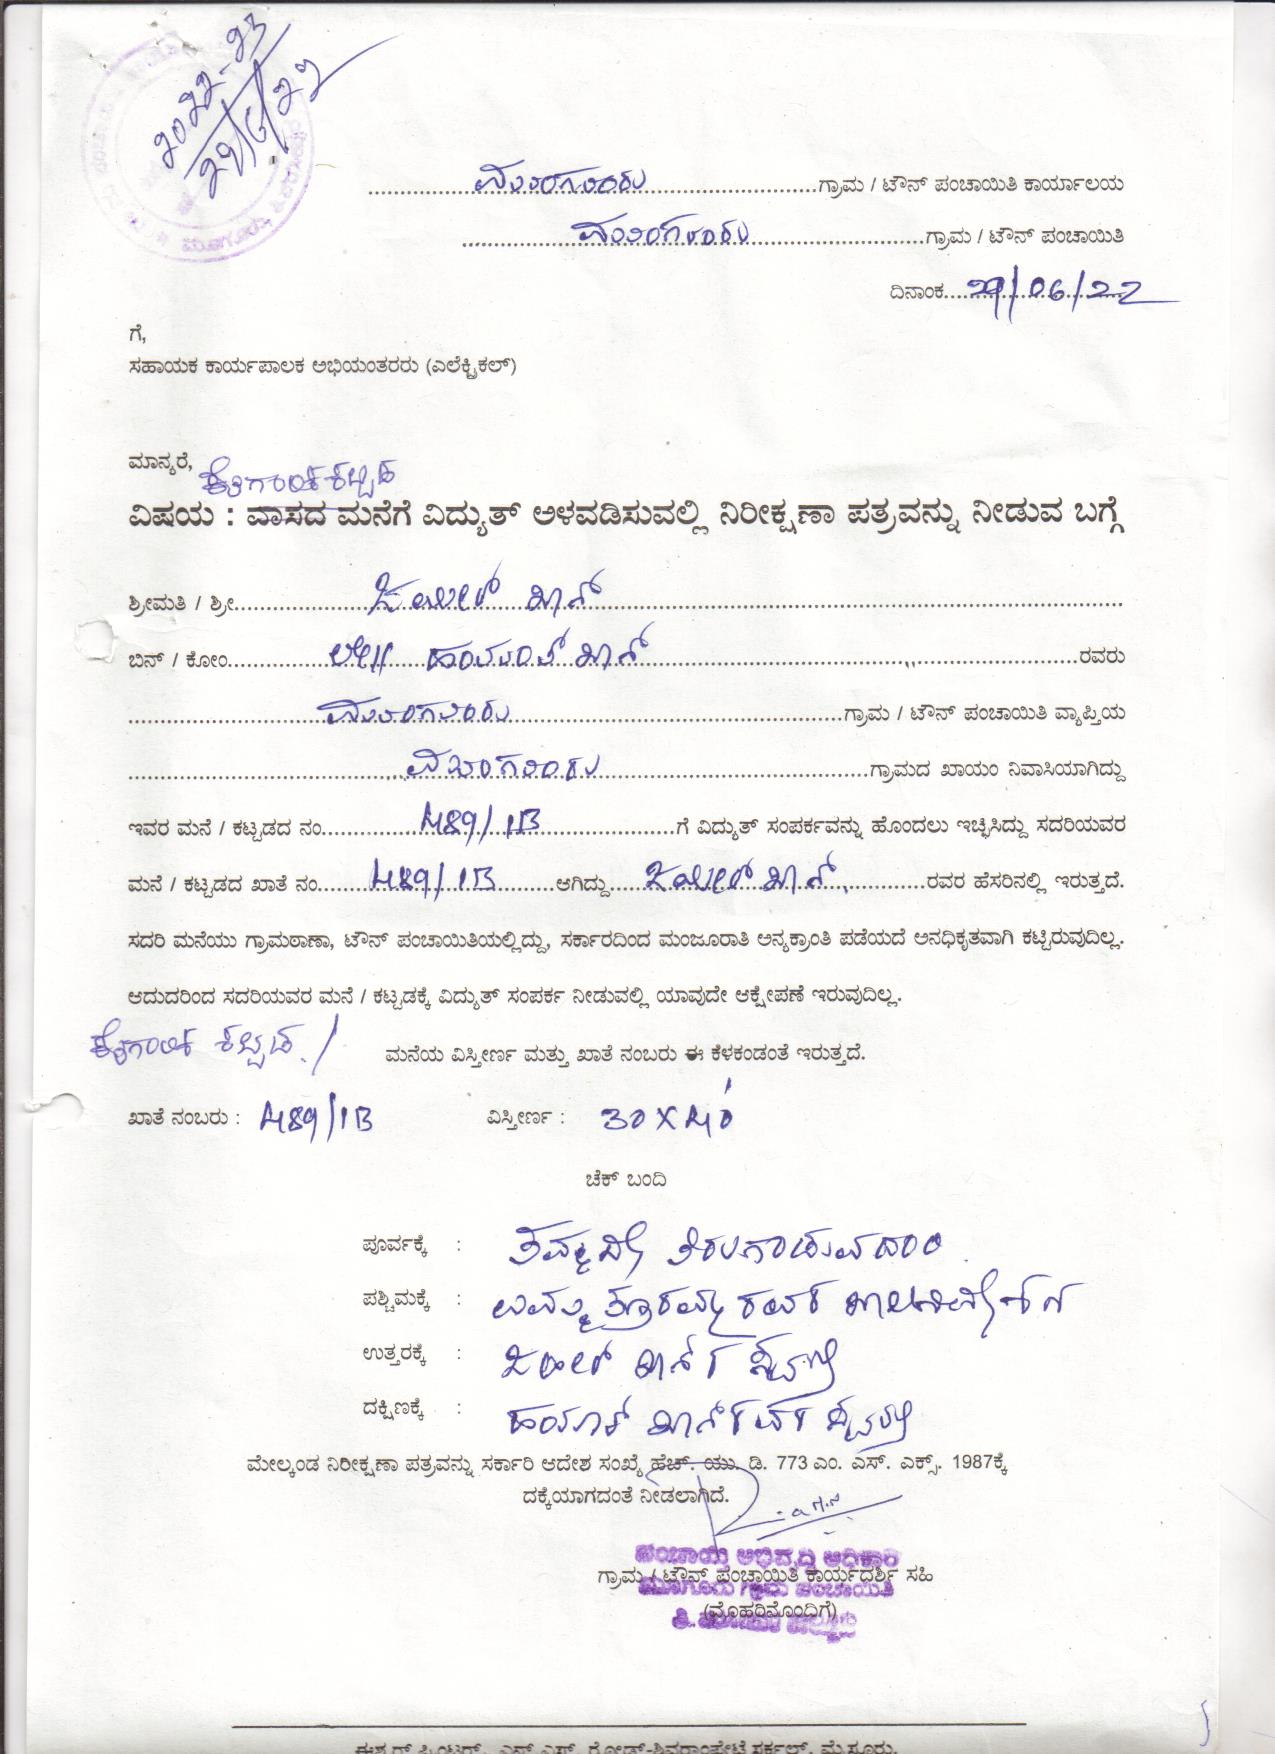 2022-23
29/6/22
ಮೂಗೂರು ಗ್ರಾಮ / ಟೌನ್ ಪಂಚಾಯಿತಿ ಕಾರ್ಯಾಲಯ
ಮೂಗೂರು ಗ್ರಾಮ / ಟೌನ್ ಪಂಚಾಯಿತಿ
ದಿನಾಂಕ 29/06/22
ಗೆ,
ಸಹಾಯಕ ಕಾರ್ಯಪಾಲಕ ಅಭಿಯಂತರರು (ಎಲೆಕ್ಟ್ರಿಕಲ್)
ಮಾನ್ಯರೆ,
ಕೈಗಾರಿಕ ಕಟ್ಟಡ
ವಿಷಯ : ವಾಸದ ಮನೆಗೆ ವಿದ್ಯುತ್ ಅಳವಡಿಸುವಲ್ಲಿ ನಿರೀಕ್ಷಣಾ ಪತ್ರವನ್ನು ನೀಡುವ ಬಗ್ಗೆ
ಶ್ರೀಮತಿ / ಶ್ರೀ ಜಮೀಲ್ ಖಾನ್
ಬಿನ್ / ಕೋಂ ಲೇ|| ಖಾನ್ ರವರು
ಮೂಗೂರು ಗ್ರಾಮ / ಟೌನ್ ಪಂಚಾಯಿತಿ ವ್ಯಾಪ್ತಿಯ
ಮೂಗೂರು ಗ್ರಾಮದ ಖಾಯಂ ನಿವಾಸಿಯಾಗಿದ್ದು
ಇವರ ಮನೆ / ಕಟ್ಟಡದ ನಂ 489/1B ಗೆ ವಿದ್ಯುತ್ ಸಂಪರ್ಕವನ್ನು ಹೊಂದಲು ಇಚ್ಛಿಸಿದ್ದು ಸದರಿಯವರ
ಮನೆ / ಕಟ್ಟಡದ ಖಾತೆ ನಂ 489/1B ಆಗಿದ್ದು ಜಮೀಲ್ ಖಾನ್ ರವರ ಹೆಸರಿನಲ್ಲಿ ಇರುತ್ತದೆ.
ಸದರಿ ಮನೆಯು ಗ್ರಾಮಠಾಣಾ, ಟೌನ್ ಪಂಚಾಯಿತಿಯಲ್ಲಿದ್ದು, ಸರ್ಕಾರದಿಂದ ಮಂಜೂರಾತಿ ಅನ್ಯಕ್ರಾಂತಿ ಪಡೆಯದೆ ಅನಧಿಕೃತವಾಗಿ ಕಟ್ಟಿರುವುದಿಲ್ಲ.
ಆದುದರಿಂದ ಸದರಿಯವರ ಮನೆ / ಕಟ್ಟಡಕ್ಕೆ ವಿದ್ಯುತ್ ಸಂಪರ್ಕ ನೀಡುವಲ್ಲಿ ಯಾವುದೇ ಆಕ್ಷೇಪಣೆ ಇರುವುದಿಲ್ಲ.
ಕೈಗಾರಿಕ ಕಟ್ಟಡ / ಮನೆಯ ವಿಸ್ತೀರ್ಣ ಮತ್ತು ಖಾತೆ ನಂಬರು ಈ ಕೆಳಕಂಡಂತೆ ಇರುತ್ತದೆ.
ಖಾತೆ ನಂಬರು : 489/1B ವಿಸ್ತೀರ್ಣ : 30X40
ಚೆಕ್ ಬಂದಿ
ಪೂರ್ವಕ್ಕೆ : ತಿರುಗಾಡುವ
ಪಶ್ಚಿಮಕ್ಕೆ :
ಉತ್ತರಕ್ಕೆ : ಜಮೀಲ್ ಖಾನ್ ರ ಸ್ವತ್ತು
ದಕ್ಷಿಣಕ್ಕೆ : ಖಾನ್ ರವರ ಸ್ವತ್ತು
ಮೇಲ್ಕಂಡ ನಿರೀಕ್ಷಣಾ ಪತ್ರವನ್ನು ಸರ್ಕಾರಿ ಆದೇಶ ಸಂಖ್ಯೆ ಹೆಚ್. ಯು. ಡಿ. 773 ಎಂ. ಎಸ್. ಎಕ್ಸ್. 1987ಕ್ಕೆ
ದಕ್ಕೆಯಾಗದಂತೆ ನೀಡಲಾಗಿದೆ.
ಪಂಚಾಯ್ತಿ ಅಭಿವೃದ್ಧಿ ಅಧಿಕಾರಿ
ಗ್ರಾಮ / ಟೌನ್ ಪಂಚಾಯಿತಿ ಕಾರ್ಯದರ್ಶಿ ಸಹಿ
ಮೂಗೂರು ಗ್ರಾಮ ಪಂಚಾಯಿತಿ
(ಮೊಹರಿನೊಂದಿಗೆ)